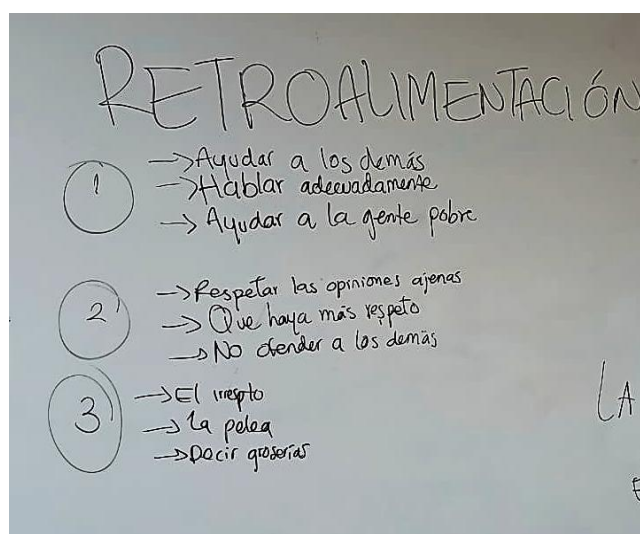 RETROALIMENTACIÓN
1
→ Ayudar a los demás
→ Hablar adecuadamente
→ Ayudar a la gente pobre
2
→ Respetar las opiniones ajenas
→ Que haya más respeto
→ No ofender a los demás
3
→ El irrespto
→ La pelea
→ Decir groserías
LA
E